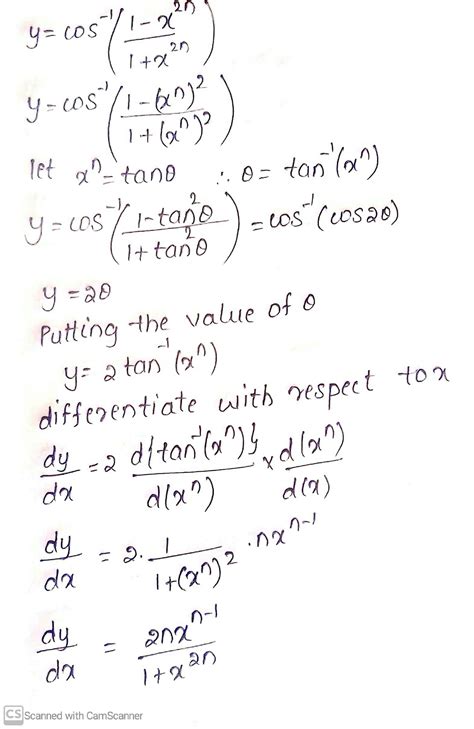 y = cos⁻¹((1 - x²ⁿ)/(1 + x²ⁿ))
y = cos⁻¹((1 - (xⁿ)²)/(1 + (xⁿ)²))
let xⁿ = tanθ ∴ θ = tan⁻¹(xⁿ)
y = cos⁻¹((1 - tan²θ)/(1 + tan²θ)) = cos⁻¹(cos2θ)
y = 2θ
Putting the value of θ
y = 2 tan⁻¹(xⁿ)
differentiate with respect to x
dy/dx = 2 d{tan⁻¹(xⁿ)}/d(xⁿ) × d(xⁿ)/d(x)
dy/dx = 2 · 1/(1 + (xⁿ)²) · nxⁿ⁻¹
dy/dx = 2nxⁿ⁻¹/(1 + x²ⁿ)
CS Scanned with CamScanner